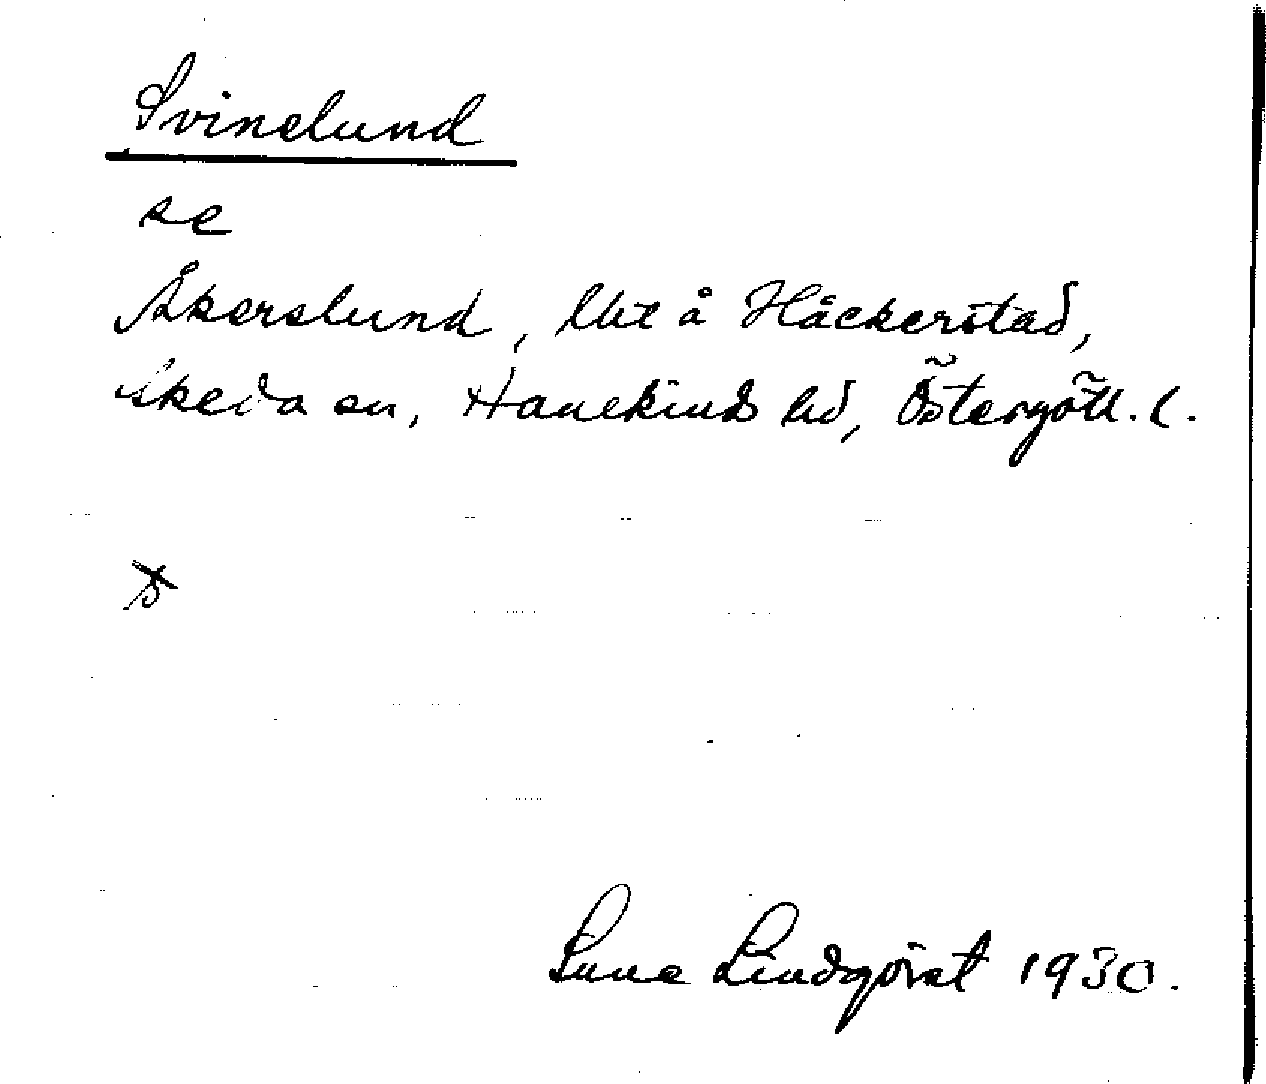 Svinelund
se
Åkerslund, lht å Häckerstad,
Skeda sn, Hanekinds hd, Östergötl. l.
Sune Lindqvist 1930.